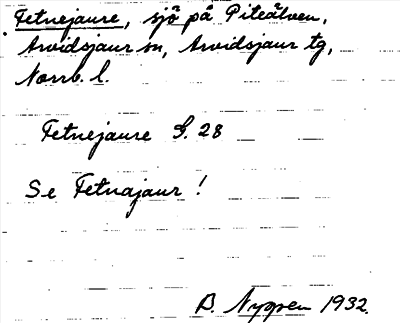 Fetnejaure, sjö på Piteälven,
Arvidsjaur sn, Arvidsjaur tg,
Norrb. l.
Fetnejaure S. 28
Se Fetnajaur!
B. Nygren 1932.